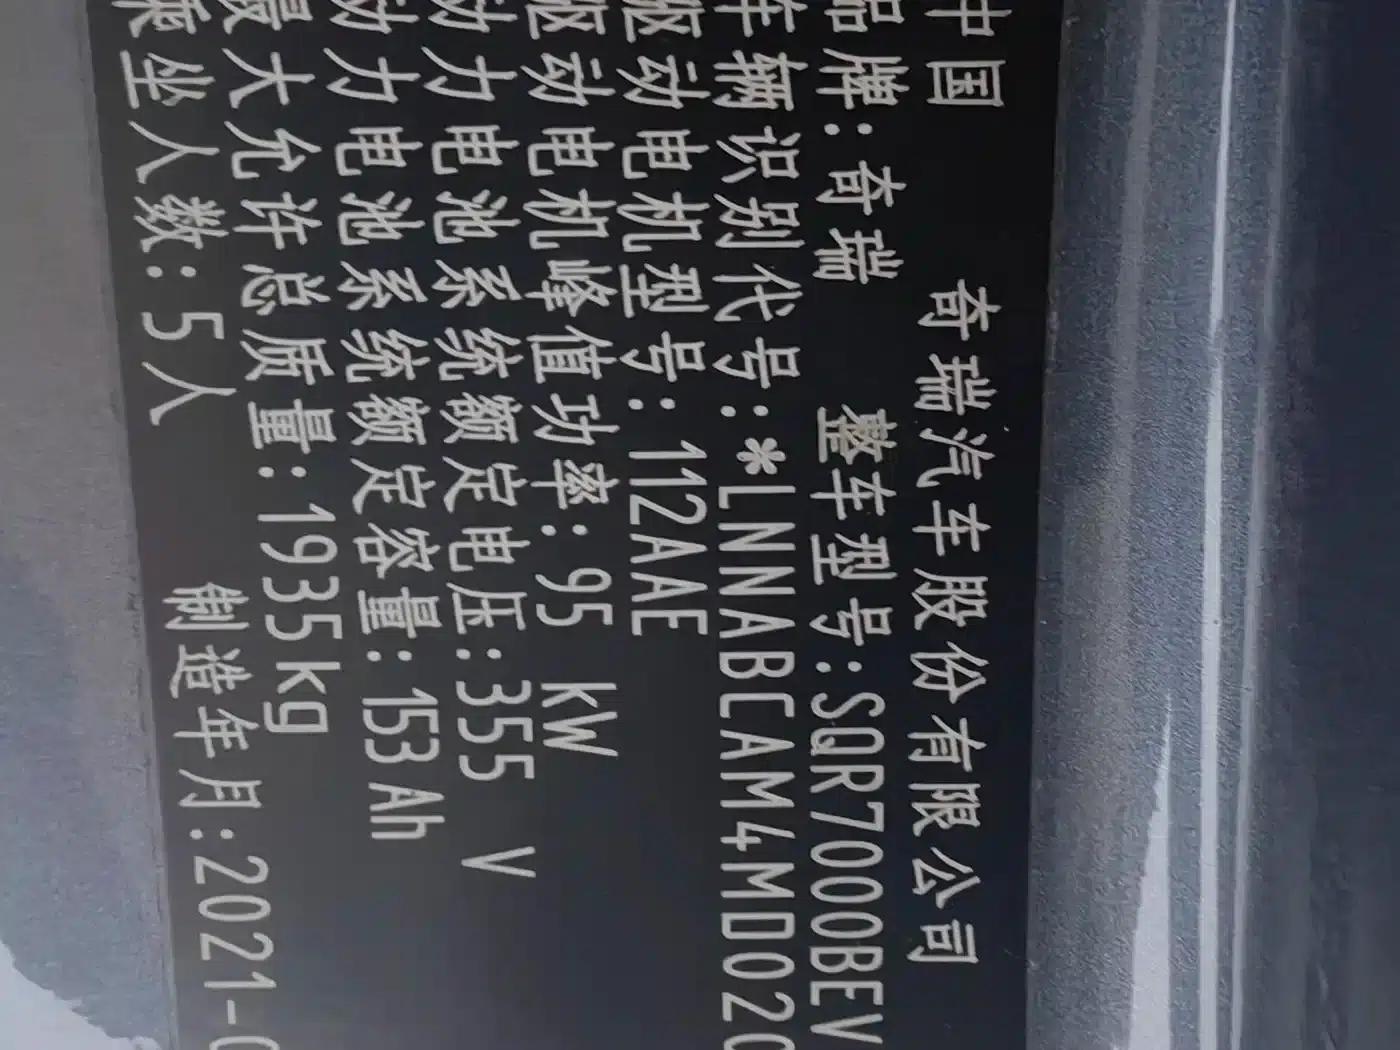 中国 奇瑞汽车股份有限公司
品牌:奇瑞 整车型号:SQR7000BEV
车辆识别代号:*LNNABCAM4MD020
驱动电机型号:112AAE
驱动电机峰值功率:95 kW
动力电池系统额定电压:355 V
动力电池系统额定容量:153Ah
最大允许总质量:1935kg
乘坐人数:5人 制造年月:2021-0